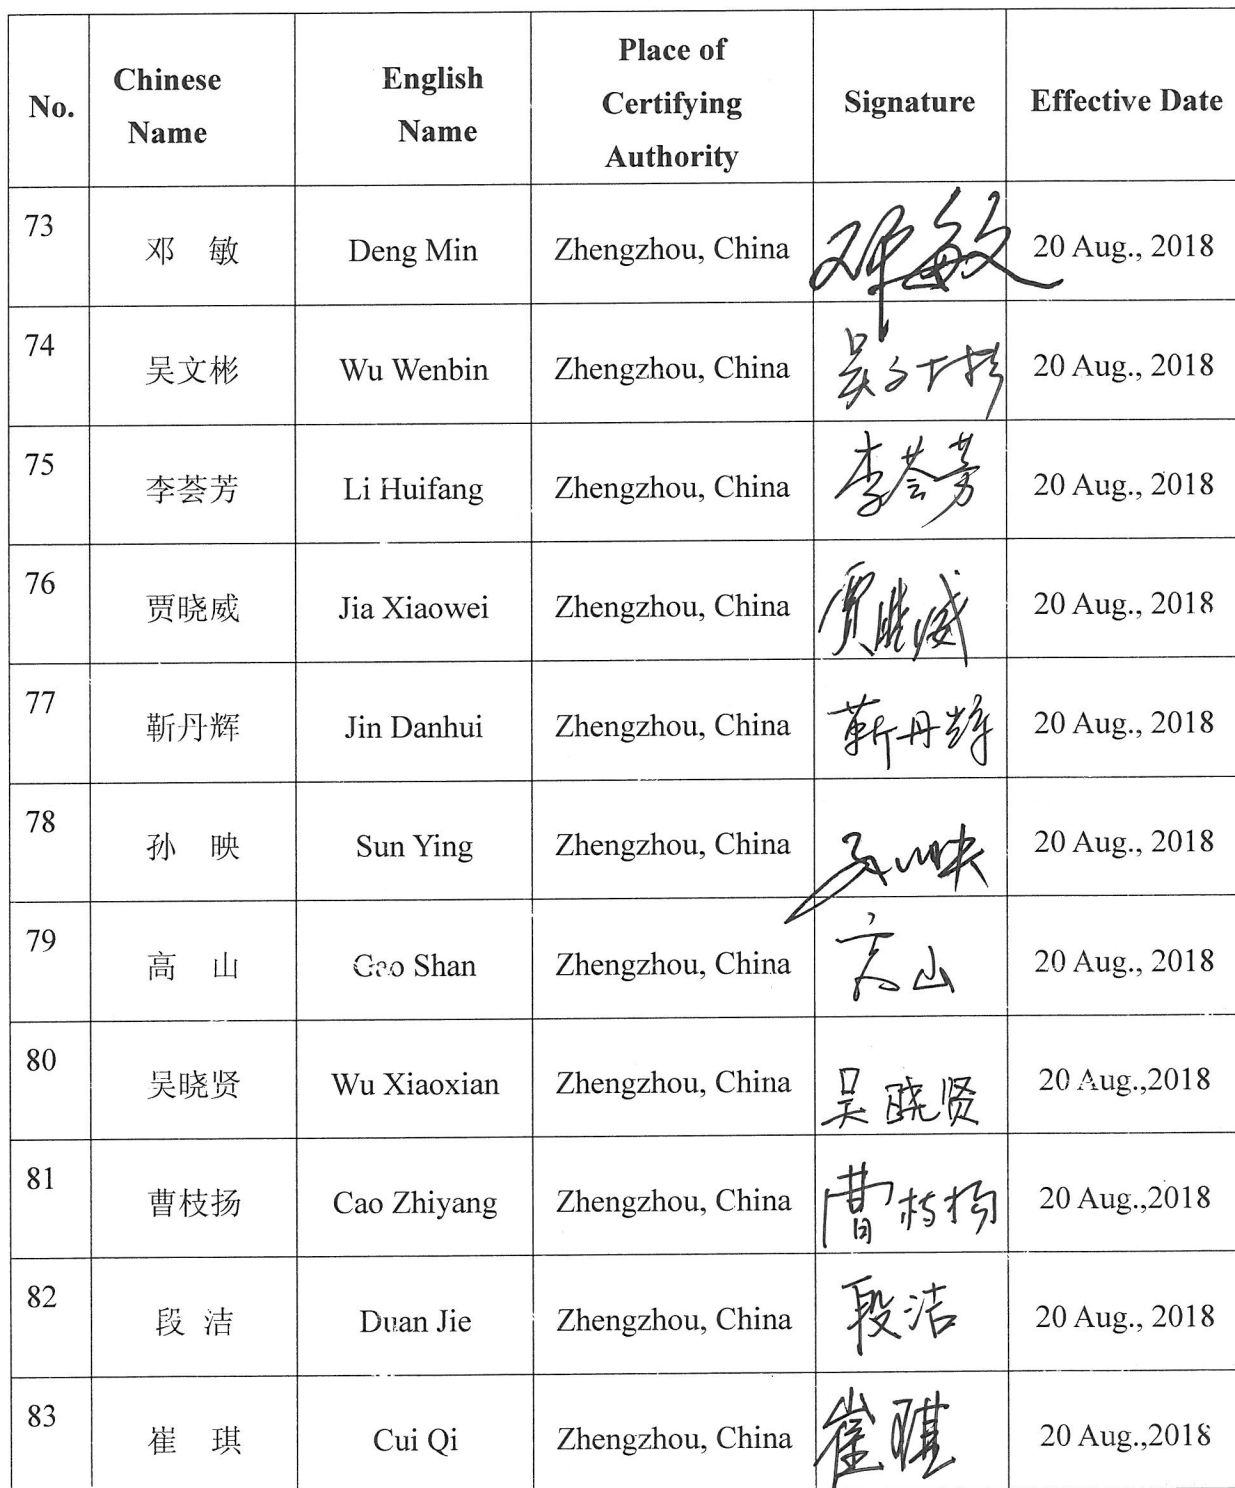 No. Chinese Name English Name Place of Certifying Authority Signature Effective Date
73 邓 敏 Deng Min Zhengzhou, China 邓敏 20 Aug., 2018
74 吴文彬 Wu Wenbin Zhengzhou, China 吴文彬 20 Aug., 2018
75 李荟芳 Li Huifang Zhengzhou, China 李荟芳 20 Aug., 2018
76 贾晓威 Jia Xiaowei Zhengzhou, China 贾晓威 20 Aug., 2018
77 靳丹辉 Jin Danhui Zhengzhou, China 靳丹辉 20 Aug., 2018
78 孙 映 Sun Ying Zhengzhou, China 孙映 20 Aug., 2018
79 高 山 Gao Shan Zhengzhou, China 高山 20 Aug., 2018
80 吴晓贤 Wu Xiaoxian Zhengzhou, China 吴晓贤 20 Aug.,2018
81 曹枝扬 Cao Zhiyang Zhengzhou, China 曹枝扬 20 Aug.,2018
82 段 洁 Duan Jie Zhengzhou, China 段洁 20 Aug., 2018
83 崔 琪 Cui Qi Zhengzhou, China 崔琪 20 Aug.,2018